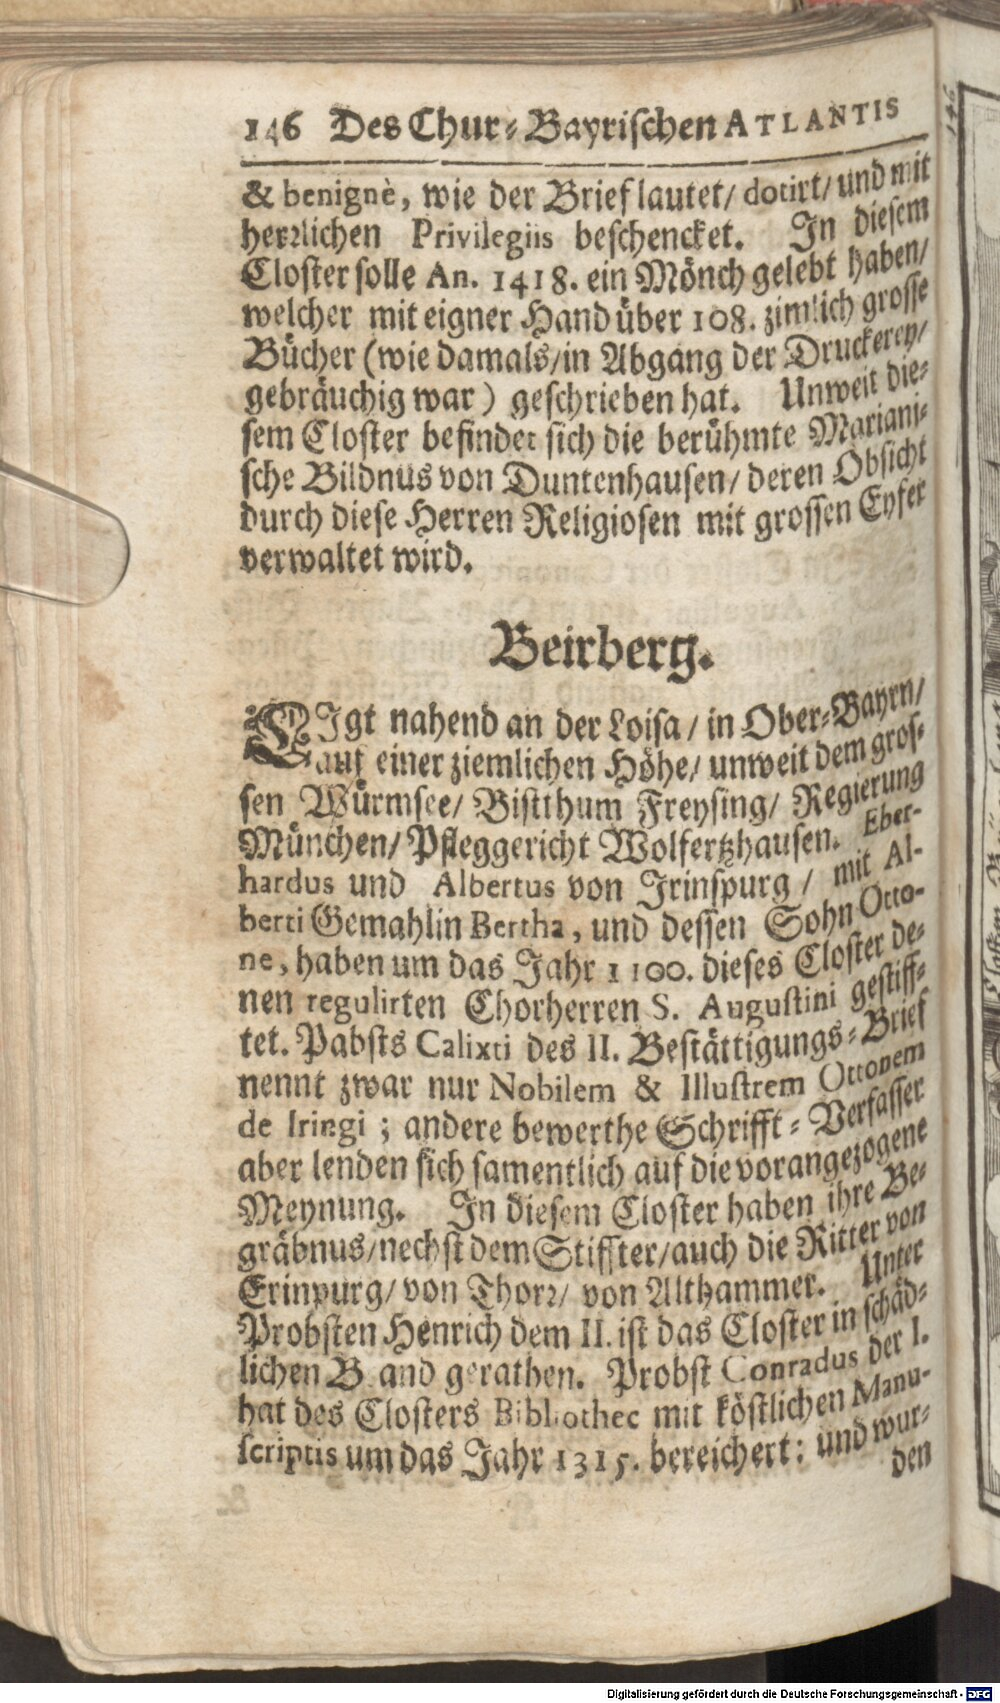 146 Des Chur-Bayrischen ATLANTIS
& benignè, wie der Brief lautet/ dotirt/ und mit
herrlichen Privilegiis beschencket. In diesem
Closter solle An. 1418. ein Mönch gelebt haben/
welcher mit eigner Hand über 108. zimlich grosse
Bücher (wie damals/ in Abgang der Druckerey/
gebräuchig war) geschrieben hat. Unweit die-
sem Closter befindet sich die berühmte Mariani-
sche Bildnus von Duntenhausen/ deren Obsicht
durch diese Herren Religiosen mit grossen Eyfer
verwaltet wird.
Beirberg.
LIgt nahend an der Loisa/ in Ober-Bayrn/
auf einer ziemlichen Höhe/ unweit dem gros-
sen Würmsee/ Bistthum Freysing/ Regierung
München/ Pfleggericht Wolfertzhausen. Eber-
hardus und Albertus von Irinspurg/ mit Al-
berti Gemahlin Bertha, und dessen Sohn Otto-
ne, haben um das Jahr 1100. dieses Closter de-
nen regulirten Chorherren S. Augustini gestiff-
tet. Pabsts Calixti des II. Bestättigungs-Brief
nennt zwar nur Nobilem & Illustrem Ottonem
de Iringi; andere bewerthe Schrifft-Verfasser
aber lenden sich samentlich auf die vorangezogene
Meynung. In diesem Closter haben ihre Be-
gräbnus/ nechst dem Stiffter/ auch die Ritter von
Erinpurg/ von Thorr/ von Althammer. Unter
Probsten Henrich dem II. ist das Closter in schäd-
lichen B and gerathen. Probst Conradus der I.
hat des Closters Bibliothec mit köstlichen Manu-
scriptis um das Jahr 1315. bereichert: und wur-
den
Digitalisierung gefördert durch die Deutsche Forschungsgemeinschaft - DFG